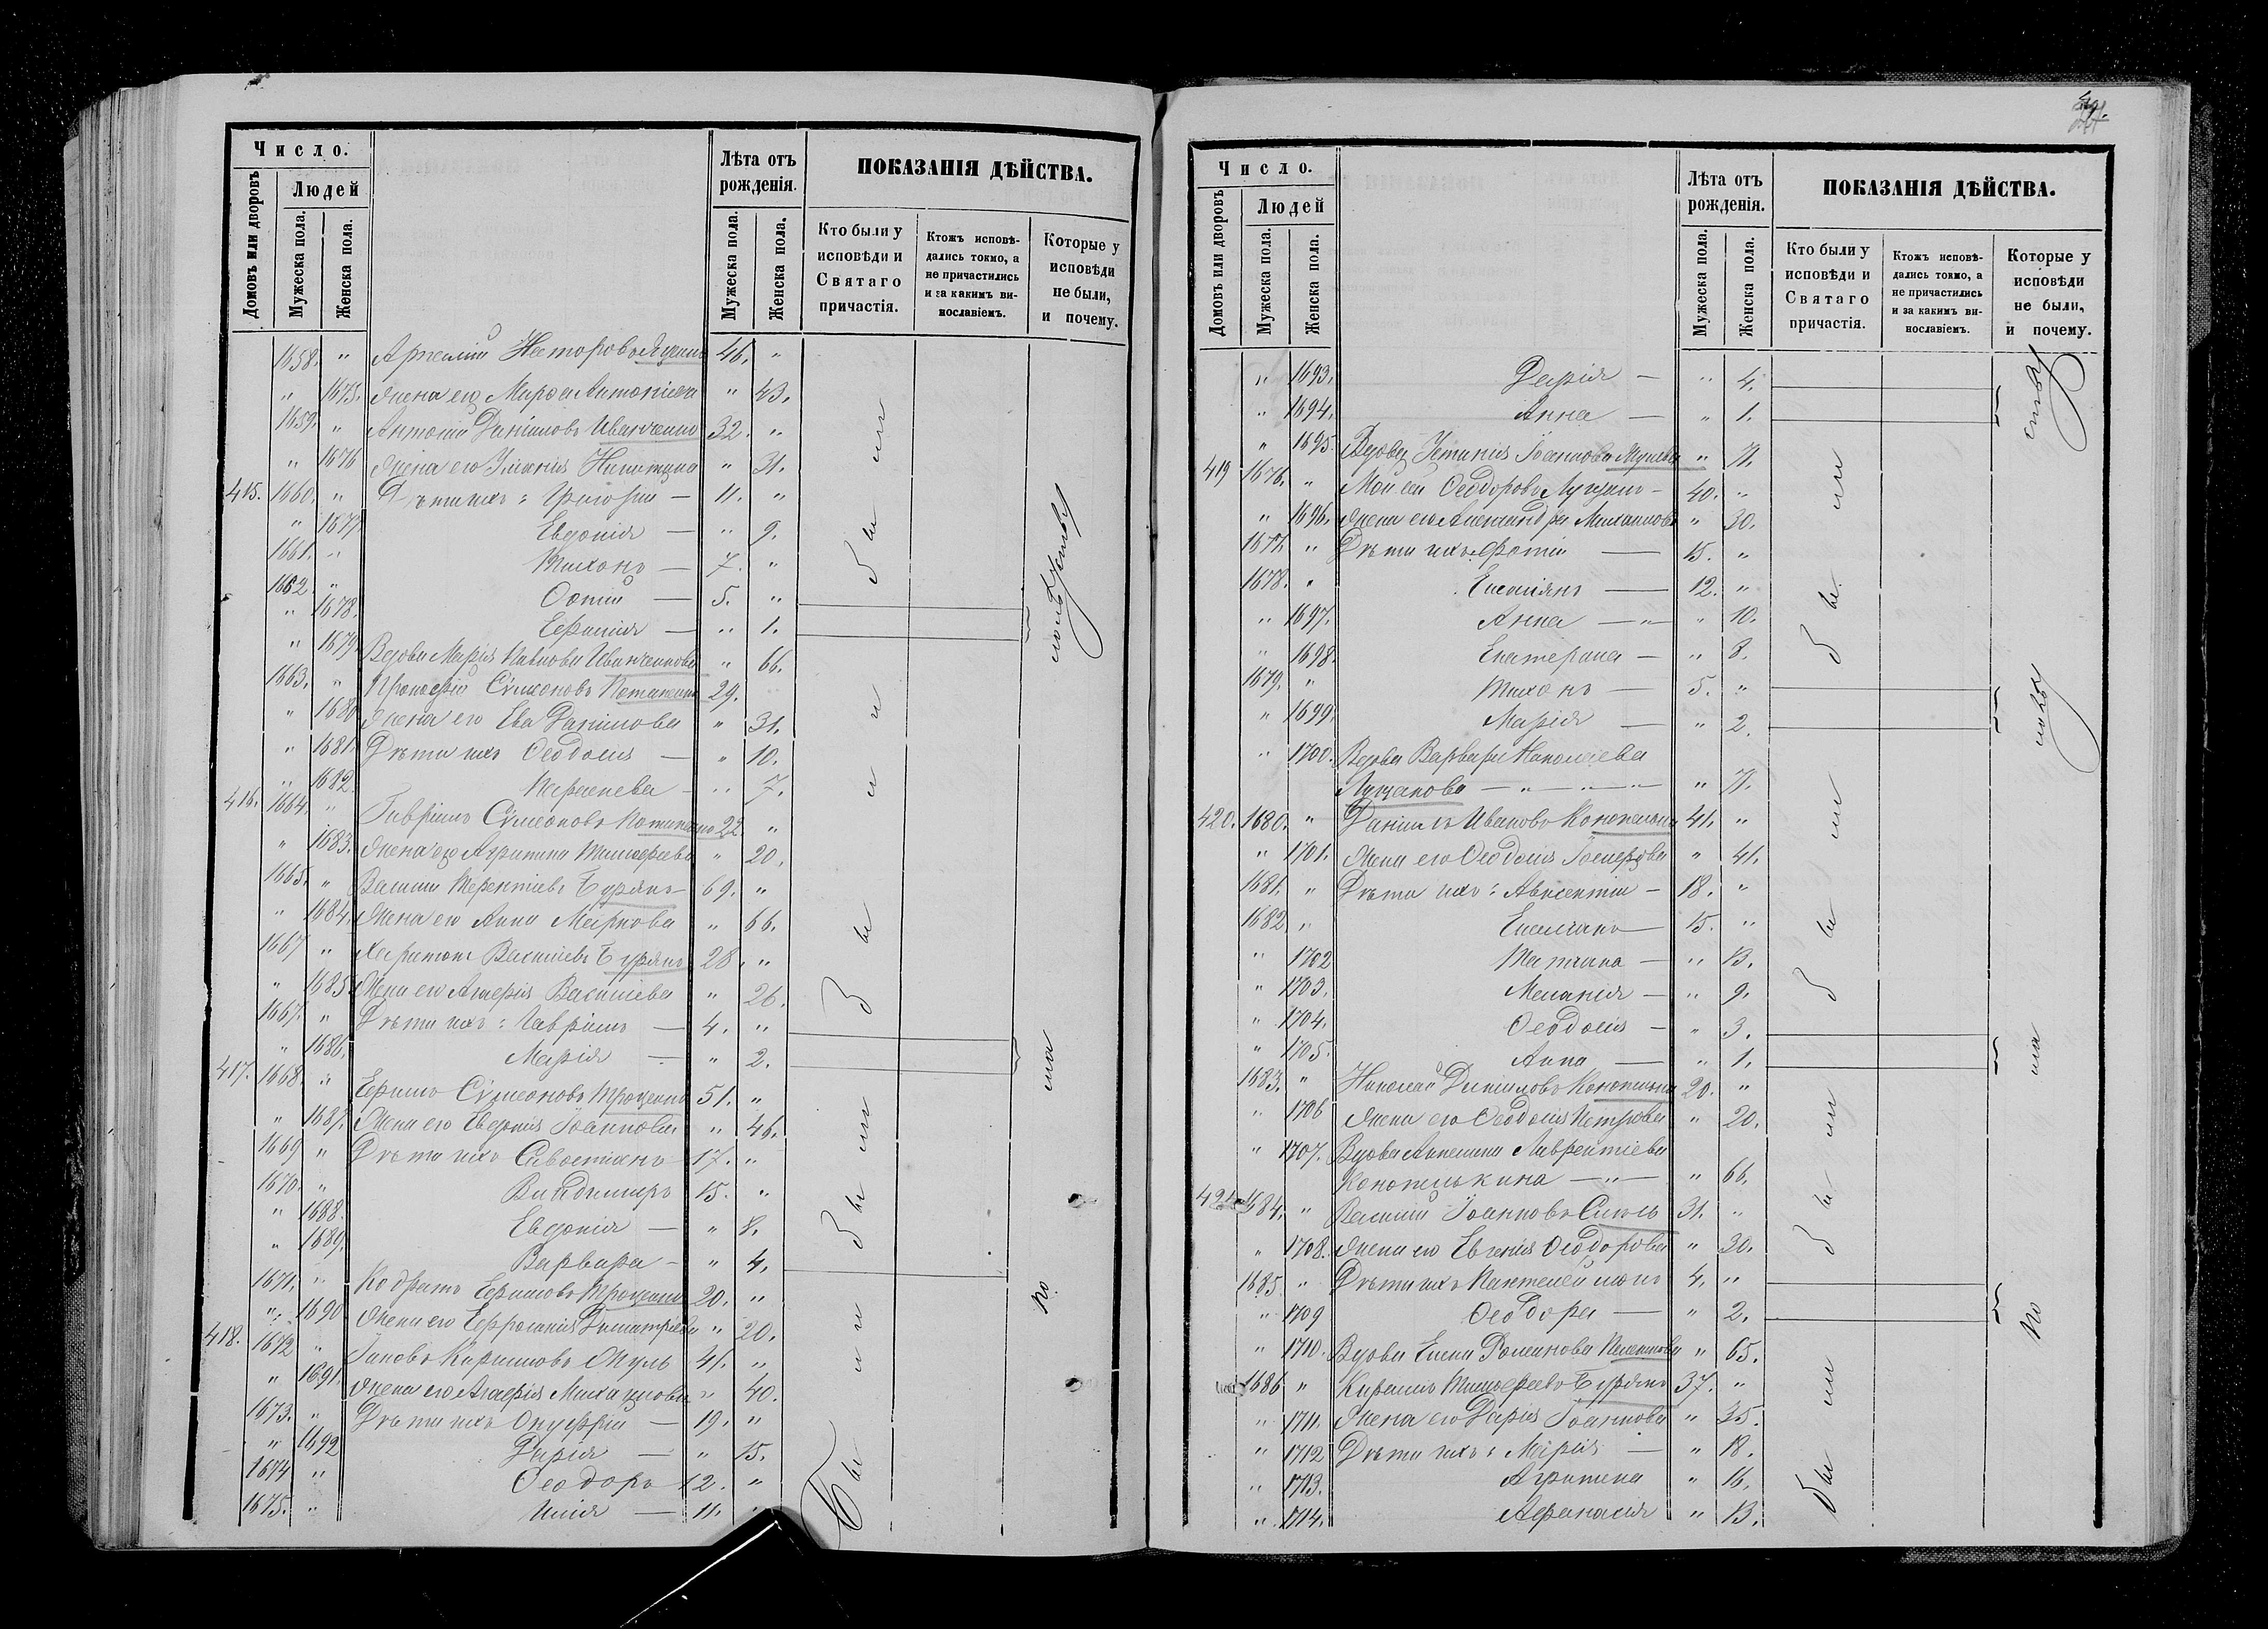 Число.
Домовъ или дворовъ
Людей
Мужеска пола.
Женска пола.
Лѣта отъ рожденія.
Мужеска пола.
Женска пола.
ПОКАЗАНІЯ ДѢЙСТВА.
Кто были у исповѣди и Святаго причастія.
Ктожъ исповѣдались токмо, а не причастились и за какимъ винославіемъ.
Которые у исповѣди не были, и почему.
1658. " 46. "
" 1675. Жена его Марфа Антоніева " 43.
1659. " Антоній Даніиловъ Иванченко 32. "
" 1676 Жена его Уліанія Никитина " 31.
415. 1660. " Дѣти ихъ: Григорій — 11. "
" 1677 Евдокія — " 9.
1661. " Тихонъ — 7. "
1662. " Фотій — 5. "
" 1678. — " 1.
" 1679 Вдова Марія Павлова Иванченкова " 66.
1663. " Прокофій Сѵмеоновъ 29.
" 1680 Жена его Ева Даніилова " 31.
" 1681. Дѣти ихъ Ѳеодосія — " 10.
" 1682. Параскева — " 7.
416. 1664. " Гавріилъ Сѵмеоновъ 22. "
" 1683. Жена его Агрипина Тимофеева " 20.
1665. " Василій Терентіевъ Бурякъ 69. "
" 1684. Жена его Анна Маркова " 66.
1667 " Харитонъ Василіевъ Бурякъ 28. "
" 1685. Жена его Гликерія Василіева " 26.
1667. " Дѣти ихъ: Гавріилъ — 4. "
" 1686. Марія — " 2.
417. 1668. " Ефримъ Сѵмеоновъ Троценко 51. "
" 1687. Жена его Евдокія Іоаннова " 46.
1669 " Дѣти ихъ Савостіянъ 17. "
1670. " Владимиръ 15. "
" 1688. Евдокія — " 8.
" 1689. Варвара — " 4.
1671. " Кодратъ Ефримовъ Троценко 20. "
" 1690 Жена его Ефросинія Димитріева " 20.
418. 1672 " Іаковъ Кириловъ 41. "
" 1691. Жена его Гликерія Михаилова " 40.
1673. " Дѣти ихъ Онуфрій — 19. "
" 1692 Дарія — " 15.
1674 " Ѳеодоръ 12. "
1675. " Илія — 11. "
были
были
были
были
были
по
ма
лолѣтству
Число.
Домовъ или дворовъ
Людей
Мужеска пола.
Женска пола.
Лѣта отъ рожденія.
Мужеска пола.
Женска пола.
ПОКАЗАНІЯ ДѢЙСТВА.
Кто были у исповѣди и Святаго причастія.
Ктожъ исповѣдались токмо, а не причастились и за какимъ винославіемъ.
Которые у исповѣди не были, и почему.
" 1693. Дарія — " 4.
" 1694. Анна — " 1.
" 1695. Вдова Устинія Іоаннова " 71.
419 1676. " Моисей Ѳеодоровъ Луценко — 40. "
" 1696. Жена его Александра Михаилова " 30.
1677. " Дѣти ихъ: Фотій — 15. "
1678. " Емеліянъ — 12. "
" 1697. Анна — " 10.
" 1698. Екатерина — " 8.
1679. " Тихонъ — 5. "
" 1699. Марія — " 2.
" 1700. Вдова Варвара Николаева
Луценкова — " — " — " 71.
420. 1680. " Даніилъ Ивановъ Конопелька 41. "
" 1701. Жена его Ѳеодосія Іосифова " 41.
1681. " Дѣти ихъ: Авксентій — 18. "
1682 " Емеліанъ — 15. "
" 1702 Татіана — " 13.
" 1703. Меланія — " 9.
" 1704. Ѳеодосія — " 3.
" 1705. Анна — " 1.
1683. " Николай Даніиловъ Конопелька 20. "
" 1706 Жена его Ѳеодосія Петрова " 20.
" 1707. Вдова Лаврентіева
Конопелькина — " — " 66.
421. 1684. " Василій Іоанновъ 31. "
" 1708. Жена его Евгенія Ѳеодорова " 30.
1685. " Дѣти ихъ Пантелеймонъ 4. "
" 1709 Ѳеодора — " 2.
" 1710. Вдова Елена Романова " 65.
1686 " Кирилъ Тимофеевъ Бурякъ 37. "
" 1711. Жена его Дарія Іоаннова " 35.
" 1712 Дѣти ихъ: Марія — " 18.
" 1713. Агрипина " 16.
" 1714. Афанасія " 13.
были
были
были
были
по
ма